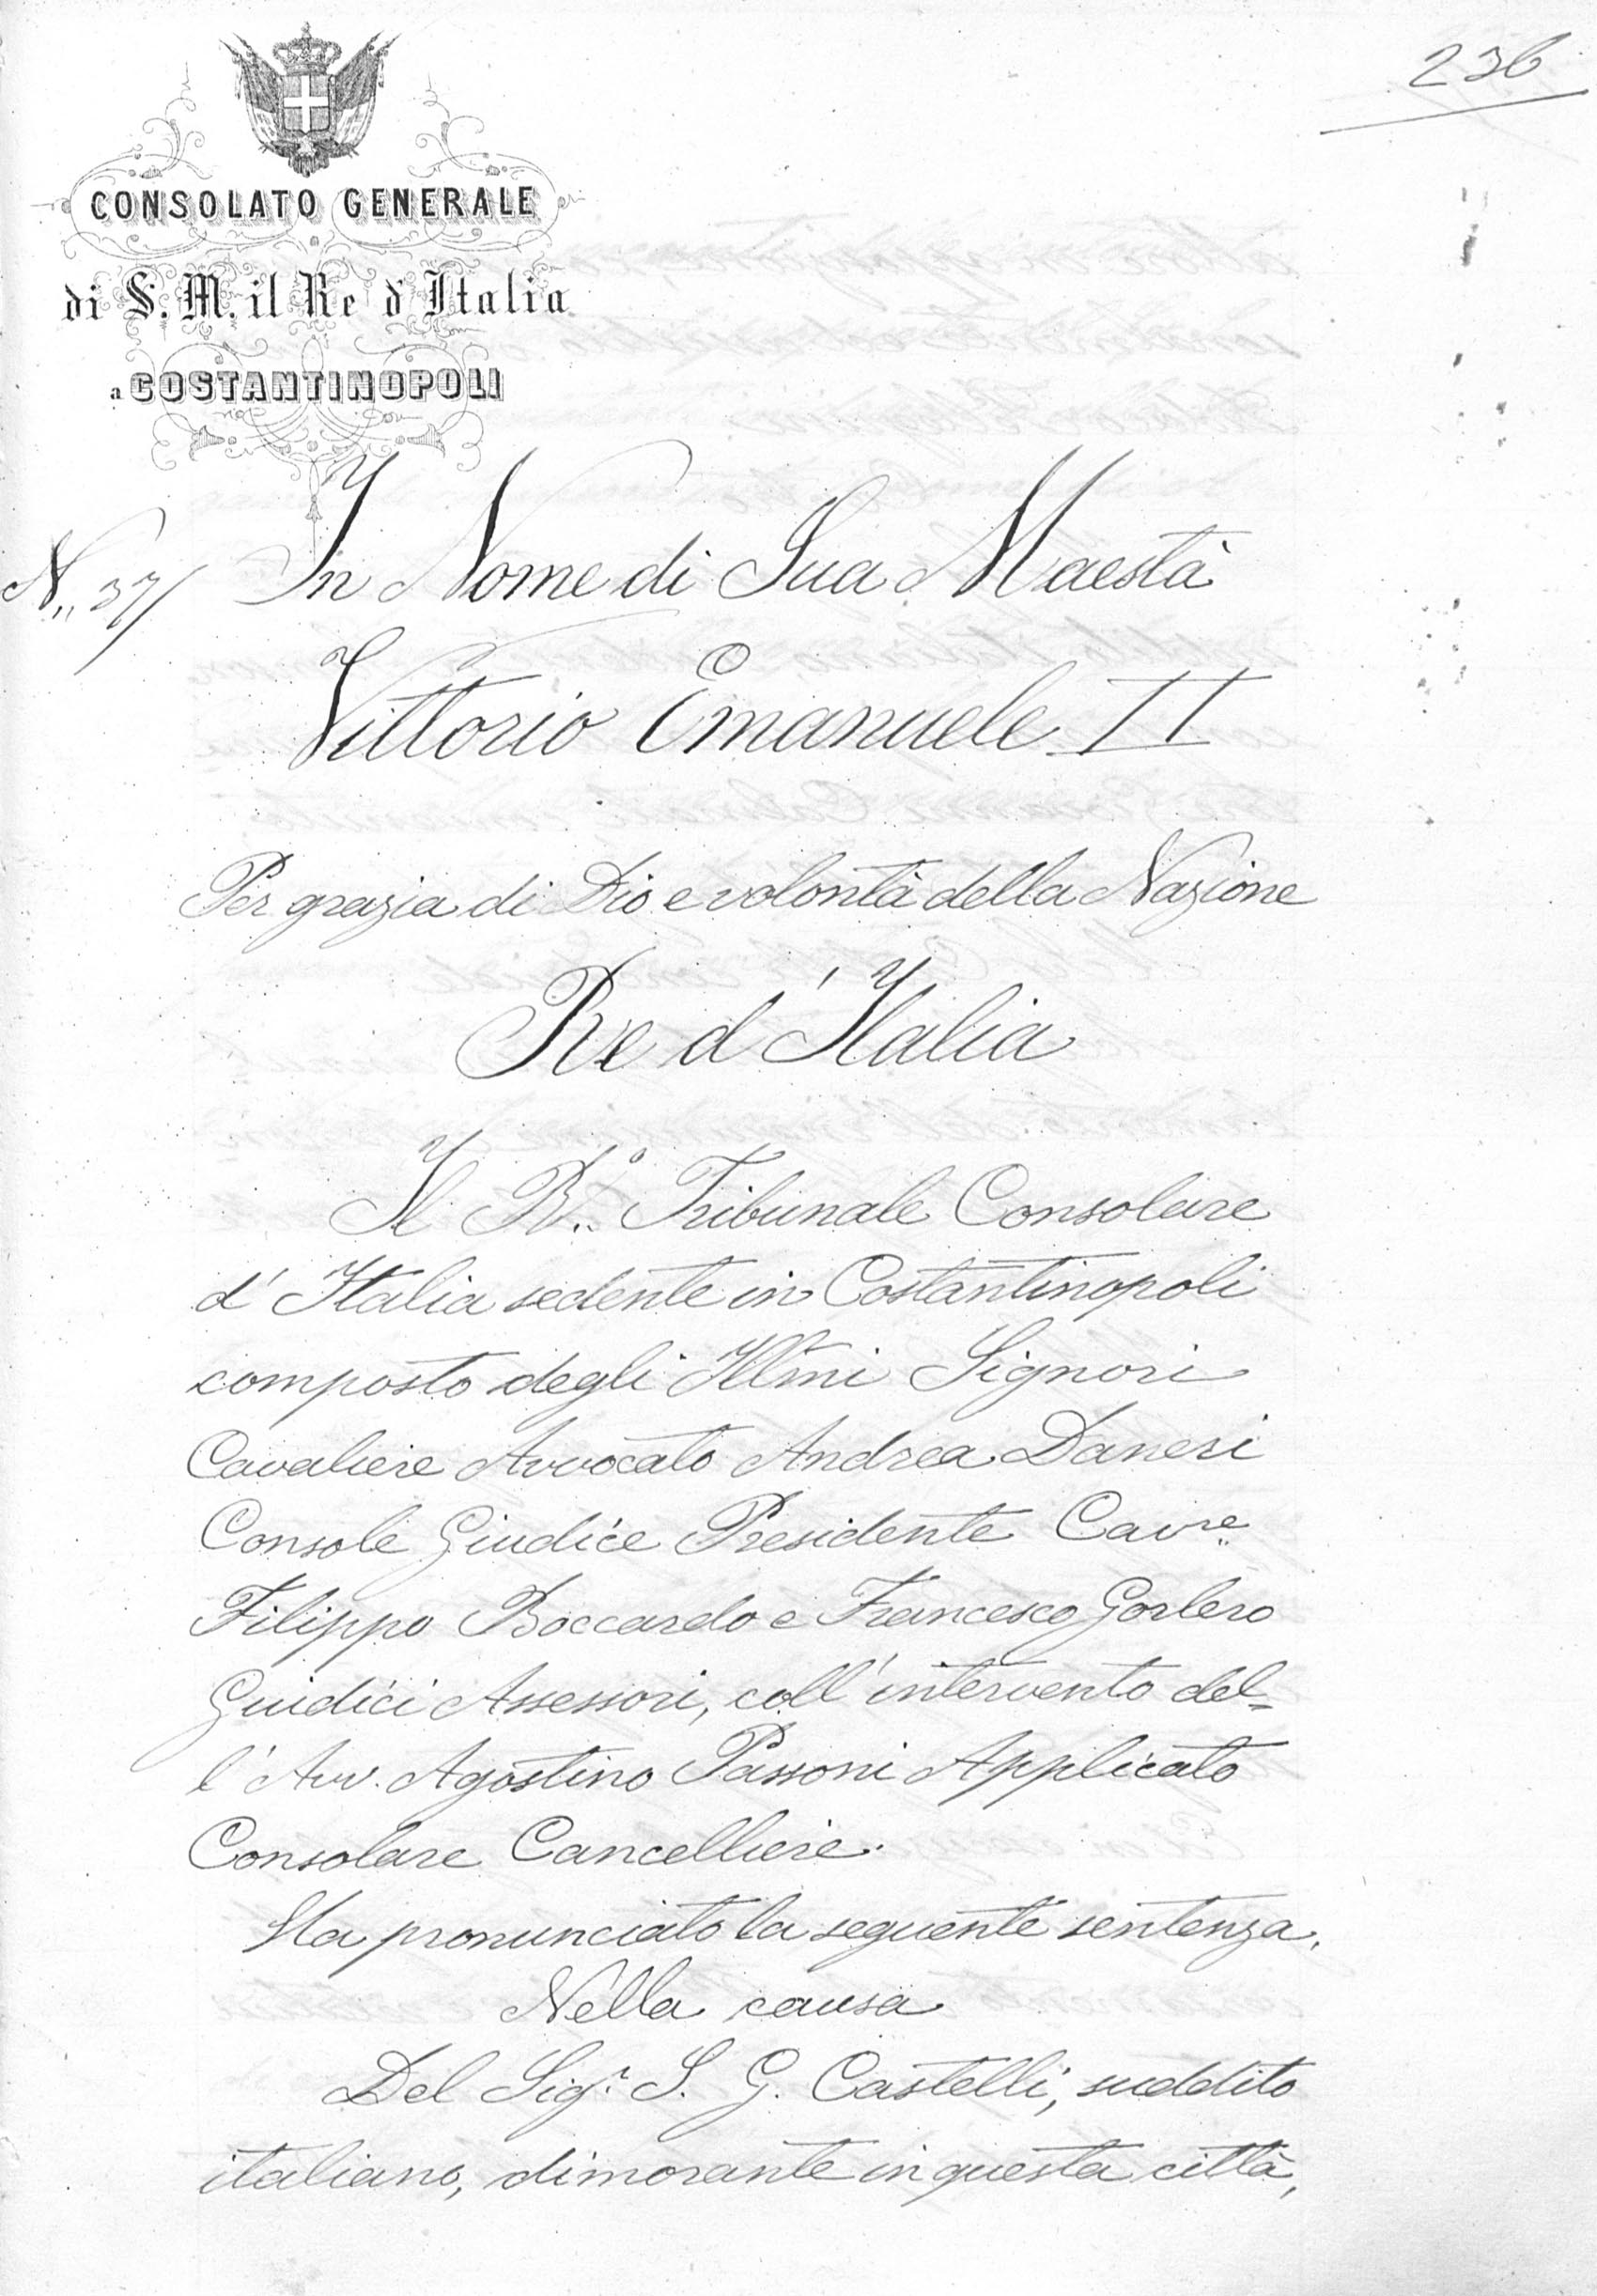 236
CONSOLATO GENERALE
di S. M. il Re d'Italia
a COSTANTINOPOLI
N. 37/
In Nome di Sua Maestà
Vittorio Emanuele II
Per grazia di Dio e volontà della Nazione
Re d'Italia
Il R.° Tribunale Consolare
d'Italia sedente in Costantinopoli
composto degli Illmi Signori
Cavaliere Avvocato Andrea Daneri
Console Giudice Presidente Cav.re
Filippo Boccardo e Francesco Gorlero
Giudici Assessori, coll'intervento del=
l'Avv. Agostino Passoni Applicato
Consolare Cancelliere.
Ha pronunciato la seguente sentenza.
Nella causa
Del Sig.r S. G. Castelli, suddito
italiano, dimorante in questa città,